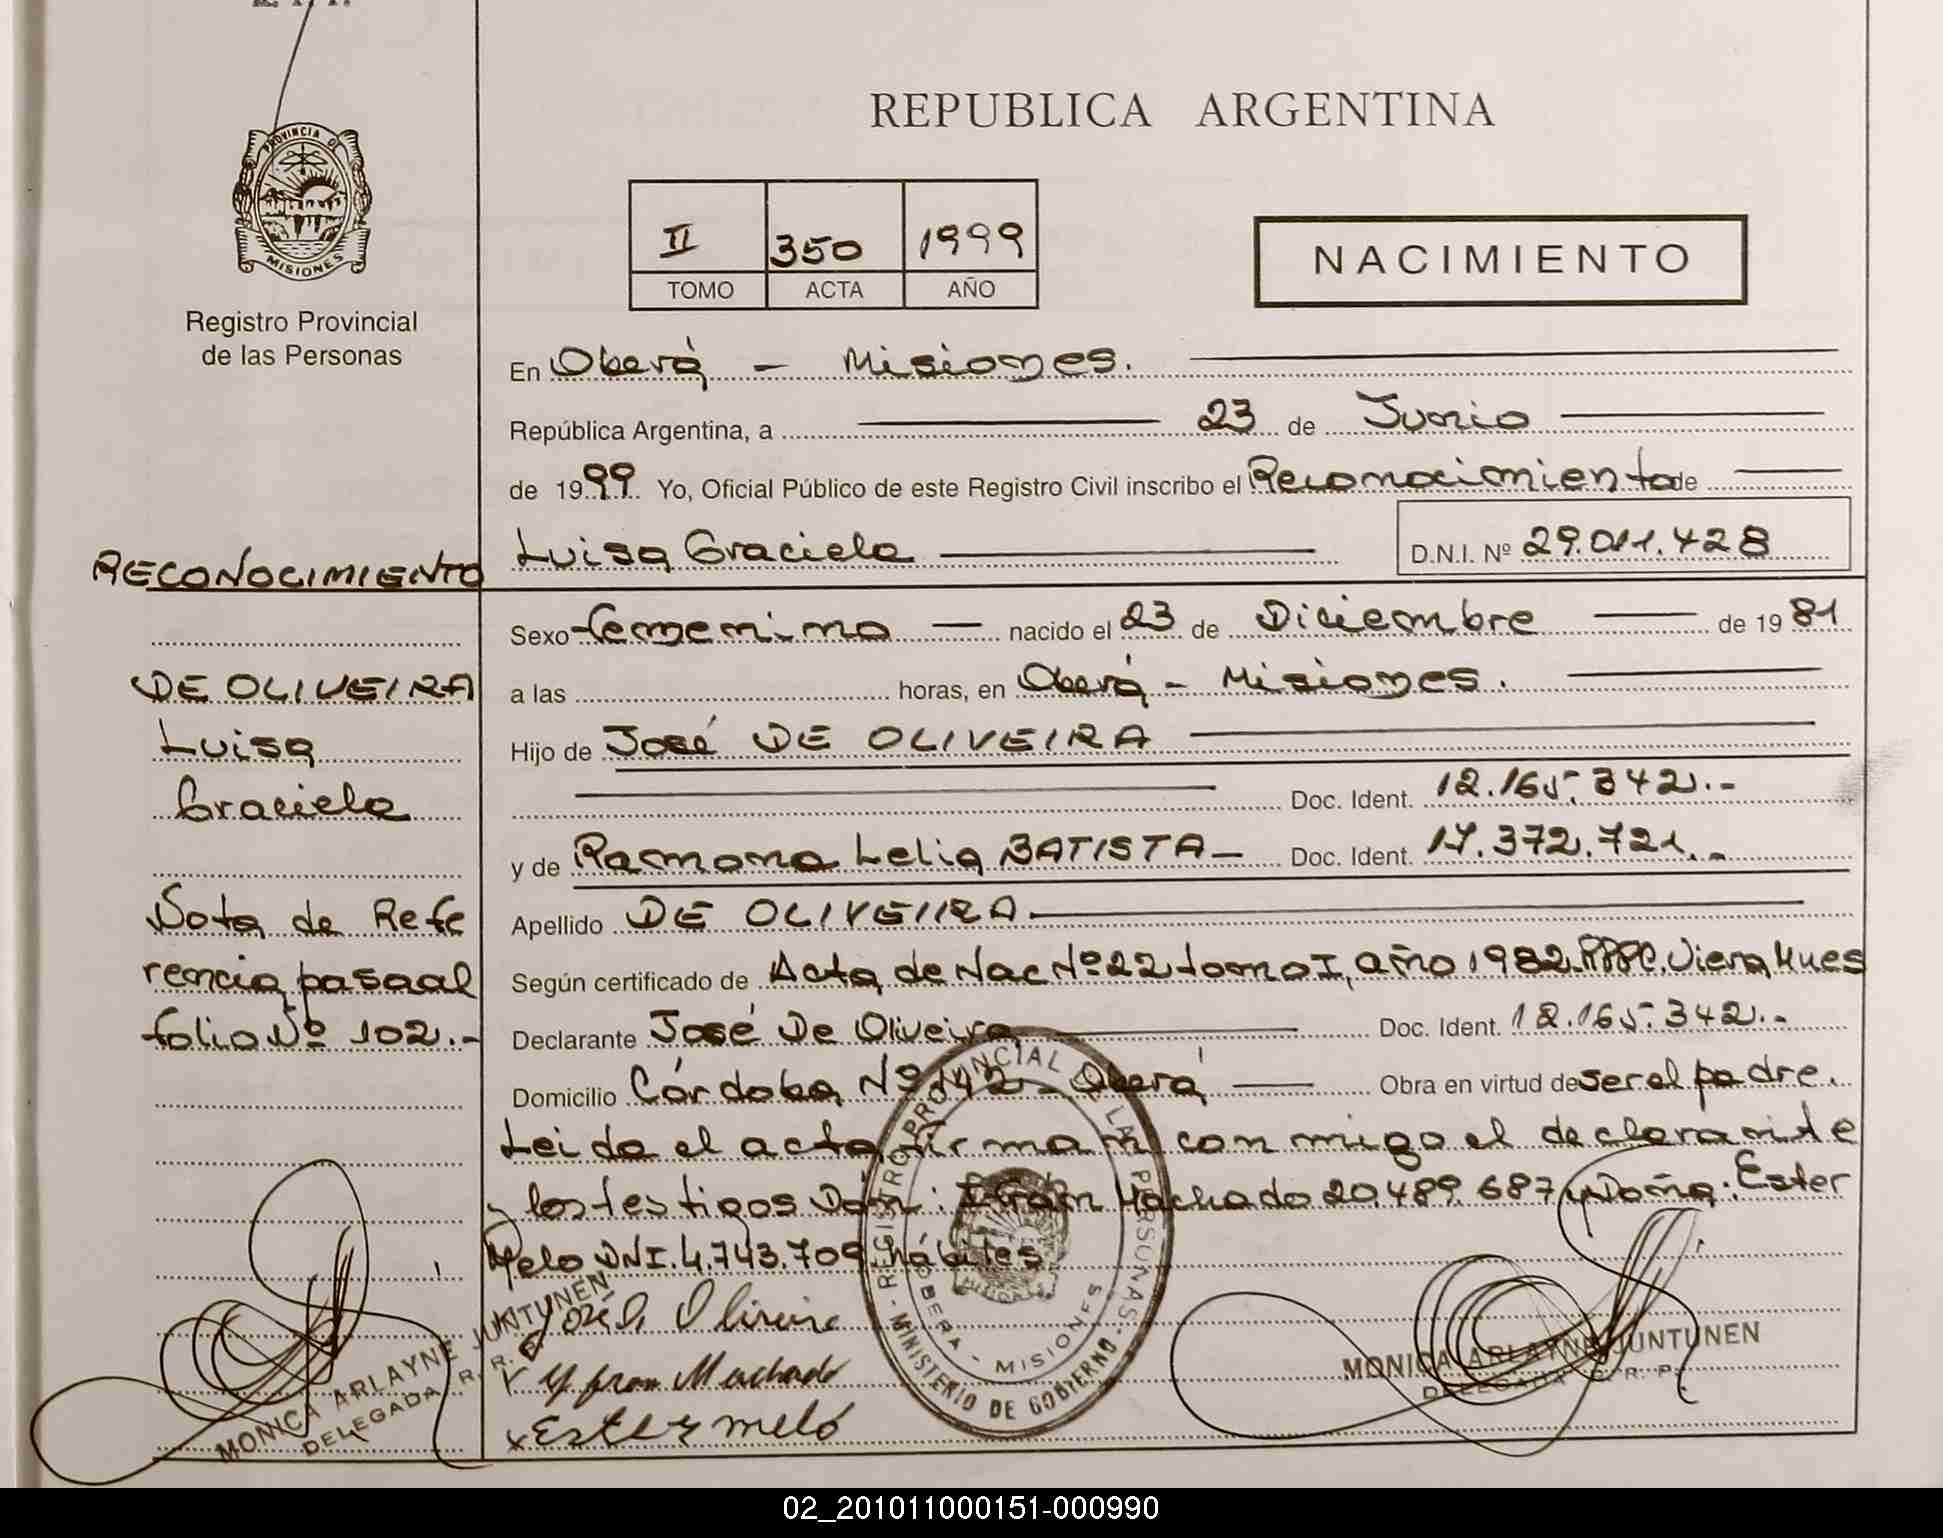 PROVINCIA DE
MISIONES
Registro Provincial
de las Personas
REPUBLICA ARGENTINA
II 350 1999
TOMO ACTA AÑO
NACIMIENTO
En Oberá - Misiones.
República Argentina, a 23 de Junio
de 1999 Yo, Oficial Público de este Registro Civil inscribo el Reconocimiento de
Luisa Graciela D.N.I. Nº 29.011.428
RECONOCIMIENTO
DE OLIVEIRA
Luisa
Graciela
Nota de Refe
rencia pasa al
folio Nº 102.-
Sexo femenino - nacido el 23 de Diciembre de 1981
a las horas, en Oberá - Misiones.
Hijo de José DE OLIVEIRA
Doc. Ident. 12.165.342.-
y de Ramona Lelia BATISTA - Doc. Ident. 17.372.721.-
Apellido DE OLIVEIIRA
Según certificado de Acta de Nac Nº 22 tomo I, año 1982. Viera Mues
Declarante José De Oliveira Doc. Ident. 12.165.342.-
Domicilio Córdoba Nº 142 - Oberá Obra en virtud de ser el padre.
Leida el acta firman conmigo el declarante
y los testigos Don: Ifran Machado 20.489.687 y Doña: Ester
Melo DNI. 4.743.709 hábiles
José D. Oliveira
Yfran Machado
x Ester meló
REGISTRO PROVINCIAL DE LAS PERSONAS - MINISTERIO DE GOBIERNO
OBERA - MISIONES
MONICA ARLAYNE JUNTUNEN
DELEGADA R. R. P.
MONICA ARLAYNE JUNTUNEN
DELEGADA R. P.
02_201011000151-000990